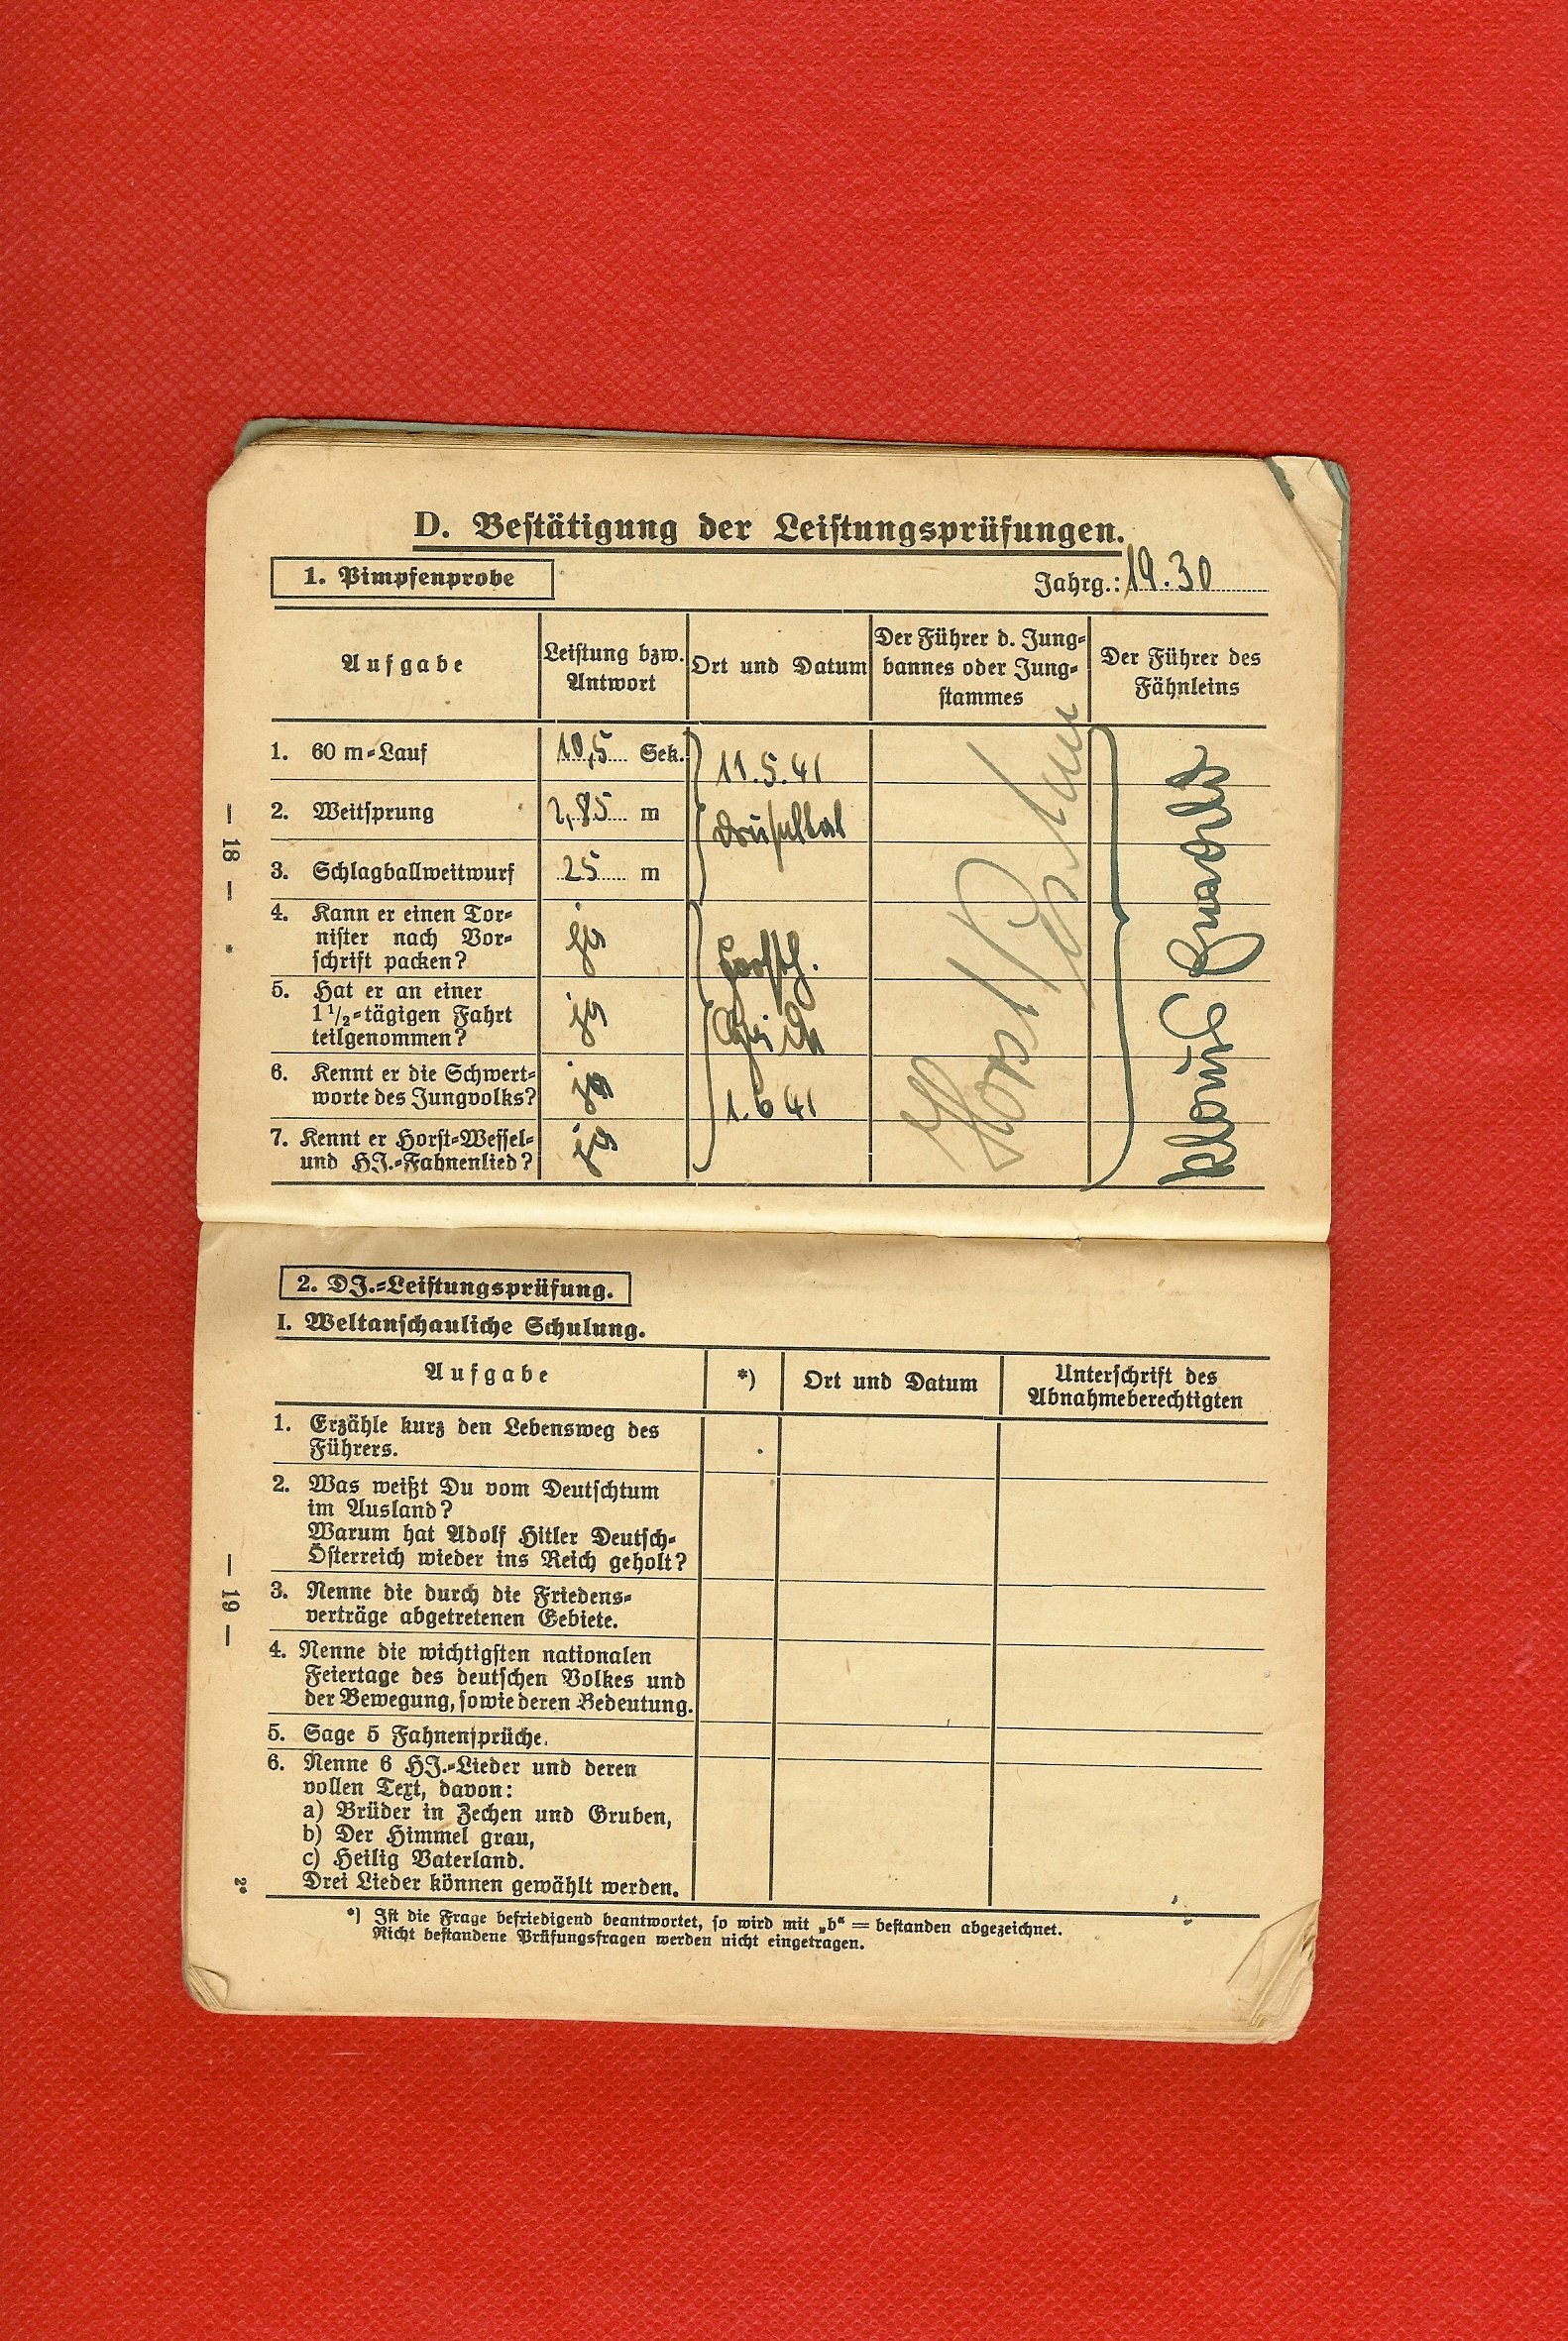 D. Bestätigung der Leistungsprüfungen.
1. Pimpfenprobe
Jahrg.: 19.30
Aufgabe
Leistung bzw. Antwort
Ort und Datum
Der Führer d. Jung-
bannes oder Jung-
stammes
Der Führer des
Fähnleins
1. 60 m-Lauf 10,5 Sek.
11.5.41
2. Weitsprung 2,85 m
Druseltal
3. Schlagballweitwurf 25 m
4. Kann er einen Tor-
nister nach Vor-
schrift packen?
ja
5. Hat er an einer
1 1/2-tägigen Fahrt
teilgenommen?
ja
6. Kennt er die Schwert-
worte des Jungvolks?
ja
1.6 41
7. Kennt er Horst-Wessel-
und HJ.-Fahnenlied?
ja
Horst
Klaus
— 18 —
*
2. DJ.-Leistungsprüfung.
I. Weltanschauliche Schulung.
Aufgabe
*)
Ort und Datum
Unterschrift des
Abnahmeberechtigten
1. Erzähle kurz den Lebensweg des
Führers.
2. Was weißt Du vom Deutschtum
im Ausland?
Warum hat Adolf Hitler Deutsch-
Österreich wieder ins Reich geholt?
3. Nenne die durch die Friedens-
verträge abgetretenen Gebiete.
4. Nenne die wichtigsten nationalen
Feiertage des deutschen Volkes und
der Bewegung, sowie deren Bedeutung.
5. Sage 5 Fahnensprüche.
6. Nenne 6 HJ.-Lieder und deren
vollen Text, davon:
a) Brüder in Zechen und Gruben,
b) Der Himmel grau,
c) Heilig Vaterland.
Drei Lieder können gewählt werden.
*) Ist die Frage befriedigend beantwortet, so wird mit „b“ = bestanden abgezeichnet.
Nicht bestandene Prüfungsfragen werden nicht eingetragen.
— 19 —
2*